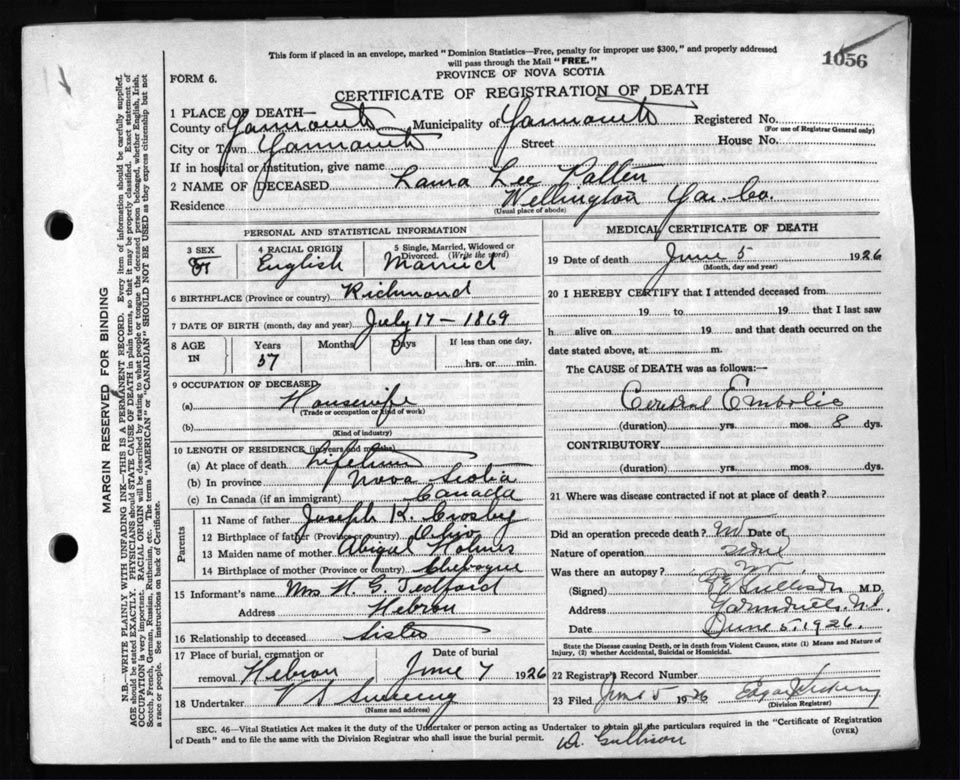 This form if placed in an envelope, marked "Dominion Statistics—Free, penalty for improper use $300," and properly addressed
will pass through the Mail "FREE."
1056
FORM 6.
PROVINCE OF NOVA SCOTIA
CERTIFICATE OF REGISTRATION OF DEATH
1 PLACE OF DEATH—
County of Yarmouth Municipality of Yarmouth Registered No.
(For use of Registrar General only)
City or Town Yarmouth Street House No.
If in hospital or institution, give name
2 NAME OF DECEASED Laura Lee Patten
Residence Wellington Yar. Co.
(Usual place of abode)
PERSONAL AND STATISTICAL INFORMATION
3 SEX 4 RACIAL ORIGIN 5 Single, Married, Widowed or Divorced. (Write the word)
English Married
6 BIRTHPLACE (Province or country) Richmond
7 DATE OF BIRTH (month, day and year) July 17 - 1869
8 AGE IN Years Months Days If less than one day,
57 hrs. or min.
9 OCCUPATION OF DECEASED
(a) Housewife
(Trade or occupation or kind of work)
(b)
(Kind of industry)
10 LENGTH OF RESIDENCE (in years and months)
(a) At place of death Lifetime
(b) In province Nova Scotia
(c) In Canada (if an immigrant) Canada
Parents
11 Name of father Joseph K. Crosby
12 Birthplace of father (Province or country) Ohio
13 Maiden name of mother Abigal Holmes
14 Birthplace of mother (Province or country) Chebogue
15 Informant's name Mrs H. G. Tedford
Address Hebron
16 Relationship to deceased Sister
17 Place of burial, cremation or removal Hebron Date of burial June 7 1926
18 Undertaker V S Sweeny
(Name and address)
MEDICAL CERTIFICATE OF DEATH
19 Date of death June 5 1926
(Month, day and year)
20 I HEREBY CERTIFY that I attended deceased from
19 to 19 that I last saw
h alive on 19 and that death occurred on the
date stated above, at m.
The CAUSE of DEATH was as follows:—
Cerebral Embolic
(duration) yrs. mos. 8 dys.
CONTRIBUTORY
(duration) yrs. mos. dys.
21 Where was disease contracted if not at place of death?
Did an operation precede death? no Date of
Nature of operation
Was there an autopsy? no
(Signed) M.D.
Address
Date June 5, 1926.
State the Disease causing Death, or in death from Violent Causes, state (1) Means and Nature of
Injury, (2) whether Accidental, Suicidal or Homicidal.
22 Registrar's Record Number
23 Filed June 5 1926 Edgar
(Division Registrar)
SEC. 46—Vital Statistics Act makes it the duty of the Undertaker or person acting as Undertaker to obtain all the particulars required in the "Certificate of Registration
of Death" and to file the same with the Division Registrar who shall issue the burial permit.
(OVER)
Dr. Gullison
MARGIN RESERVED FOR BINDING
N.B.—WRITE PLAINLY WITH UNFADING INK—THIS IS A PERMANENT RECORD. Every item of information should be carefully supplied.
AGE should be stated EXACTLY. PHYSICIANS should STATE CAUSE OF DEATH in plain terms, so that it may be properly classified. Exact statement of
OCCUPATION is very important. RACIAL ORIGIN will be described by stating to what people or tongue the deceased person belonged, whether English, Irish,
Scotch, French, German, Russian, Ruthenian, etc. The terms "AMERICAN" or "CANADIAN" SHOULD NOT BE USED as they express citizenship but not
a race or people. See instructions on back of Certificate.